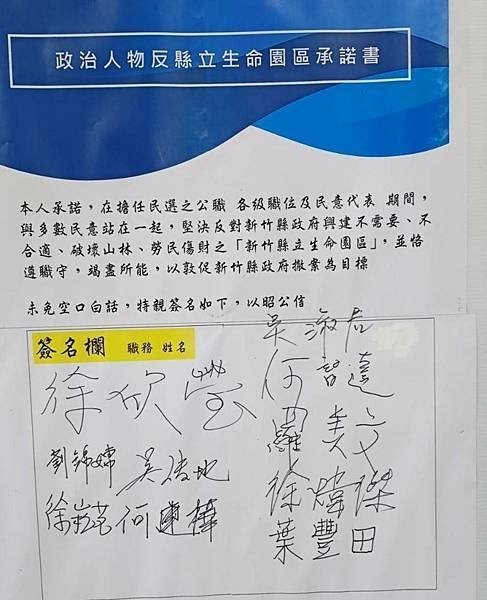 政治人物反縣立生命園區承諾書
本人承諾，在擔任民選之公職 各級職位及民意代表 期間，
與多數民意站在一起，堅決反對新竹縣政府興建不需要、不
合適、破壞山林、勞民傷財之「新竹縣立生命園區」，並恪
遵職守，竭盡所能，以敦促新竹縣政府撤案為目標
未免空口白話，特親簽名如下，以昭公信
簽名欄 職務 姓名
徐欣瑩
劉錦嬬
吳淑君
何智達
羅美文
徐煒傑
葉豐田